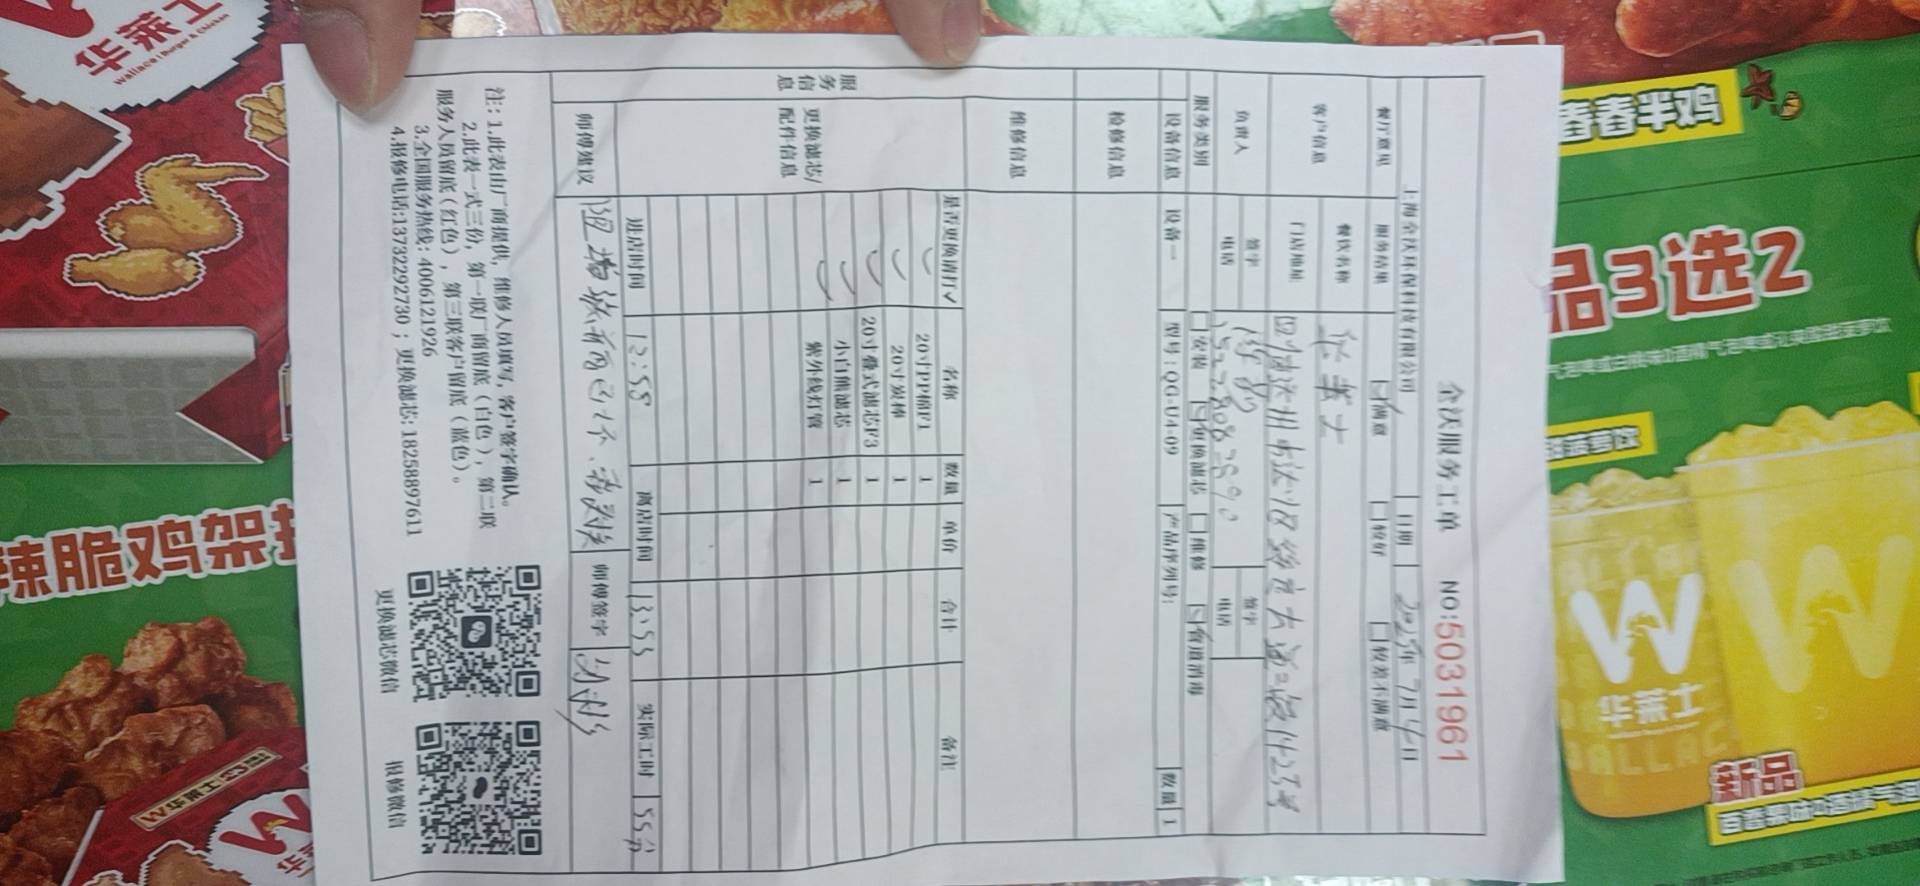 余沃服务工单 NO:5031961
上海余沃环保科技有限公司 日期 2025年7月4日
餐厅意见 服务结果 ☑满意 □较好 □较差不满意
客户信息 餐饮名称 华莱士
门店地址
负责人 签字 签字
电话 电话
服务类别 □安装 ☑更换滤芯 □维修 ☑管道消毒
设备信息 设备一 型号:QG-U4-09 产品序列号: 数量 1
检修信息
维修信息
服务信息
更换滤芯/配件信息
是否更换请打✓ 名称 数量 单价 合计 备注
✓ 20寸PP棉F1 1
✓ 20寸炭棒 1
✓ 20寸叠式滤芯F3 1
✓ 小白熊滤芯 1
✓ 紫外线灯管 1
进店时间 12:58 离店时间 13:55 实际工时 55分
师傅建议 师傅签字
注:1.此表由厂商提供,维修人员填写,客户签字确认。
2.此表一式三份,第一联厂商留底(白色),第二联
服务人员留底(红色),第三联客户留底(蓝色)。
3.全国服务热线:4006121926
4.报修电话:13732292730;更换滤芯:18258897611
更换滤芯微信
报修微信
华莱士
Wallace | Burger & Chicken
辣脆鸡架
W华莱士
舂舂半鸡
品3选2
W
华莱士
新品